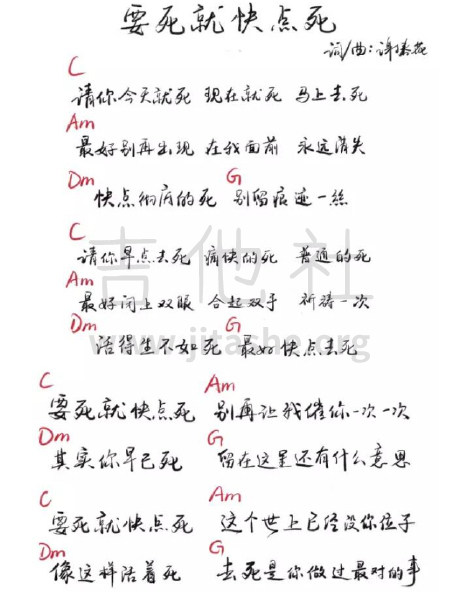 要死就快点死
词/曲:谢春花
C
请你今天就死 现在就死 马上去死
Am
最好别再出现 在我面前 永远消失
Dm G
快点彻底的死 别留痕迹一丝
C
请你早点去死 痛快的死 普通的死
Am
最好闭上双眼 合起双手 祈祷一次
Dm G
活得生不如死 最好快点去死
C Am
要死就快点死 别再让我催你一次一次
Dm G
其实你早已死 留在这里还有什么意思
C Am
要死就快点死 这个世上已经没你位子
Dm G
像这样活着死 去死是你做过最对的事
吉他社
www.jitashe.org